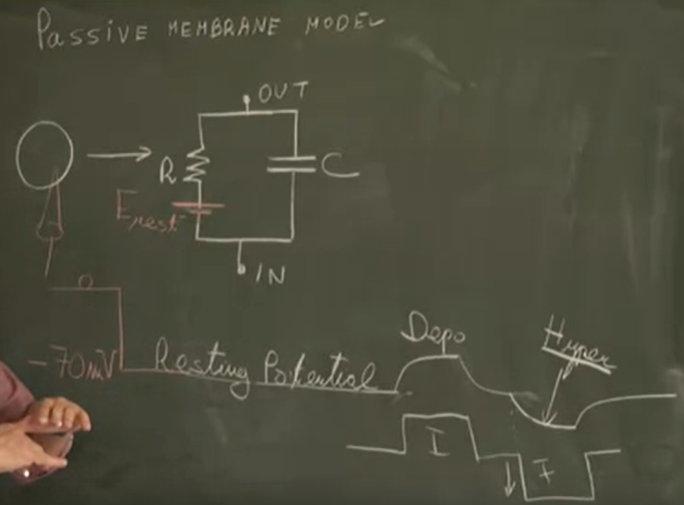 PASSIVE MEMBRANE MODEL
OUT
R
C
Erest
IN
0
-70mV
Resting Potential
Depo
Hyper
I
I